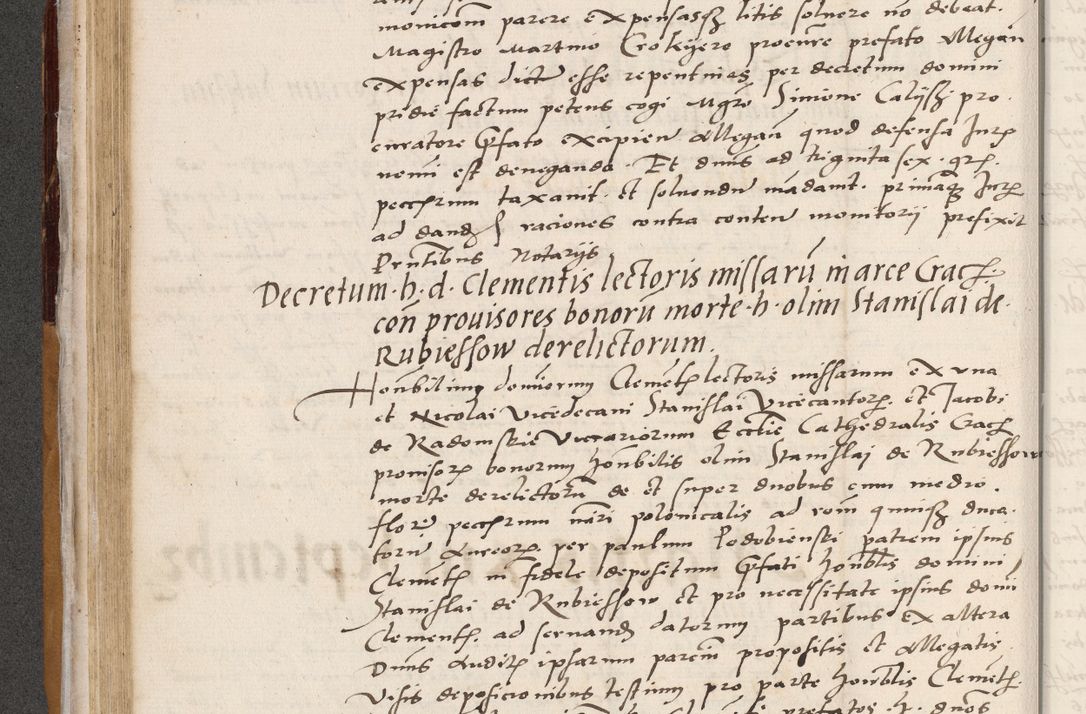 monicom parere expensasqȝ litis soluere nō debeat.
Magistro Martino Crokyero procure prefato Allegan
expensas dicte esse repentinas per decretum domini
pridie factum petens cogi Mgrō Simone Calijsȝ pro
curatore Prefato excipien Allegan quod defensa Jurȝ
nemi est deneganda. Et dnūs ad triginta sex. grȝ.
pecctrum taxauit. et soluendū mādauit. primāqȝ Jurȝ
ad dandȝ raciones contra conten monitorij prefixit
Prntibus Notarijs
Decretum h. d. Clementis lectoris missarū in arce Cracȝ
con prouisores bonorū morte h. olim Stanislai de
Rubiessow derelictorum.
Honbilium domiorum Clemetȝ lectoris missarum ex vna
et Nicolai Vicedecani Stanislai Vicecantorȝ. et Jacobi
de Radomskie Vicariorum Ecclīe Cathedralis Cracȝ
prouisorȝ bonorum honbilis olim Stanislai de Rubiessow
morte derelictorū de et super duobus cum medio
florȝ pecctrum nūri polonicalis ad rōm quinisȝ duca
torū Aureorȝ. per paulum Lodobienski patrem ipsius
Clemetȝ in fidele depositum Prefati honblis domini
Stanislai de Rubiessow et pro necessitate ipsius domī
Clementȝ. ad seruandȝ datorum partibus ex altera
Dnūs Auditȝ ipsarum parcīm propositis et Allegatis
Visis deposicionibus testium pro parte honblis Clemetȝ.
prefatos h. dnōs